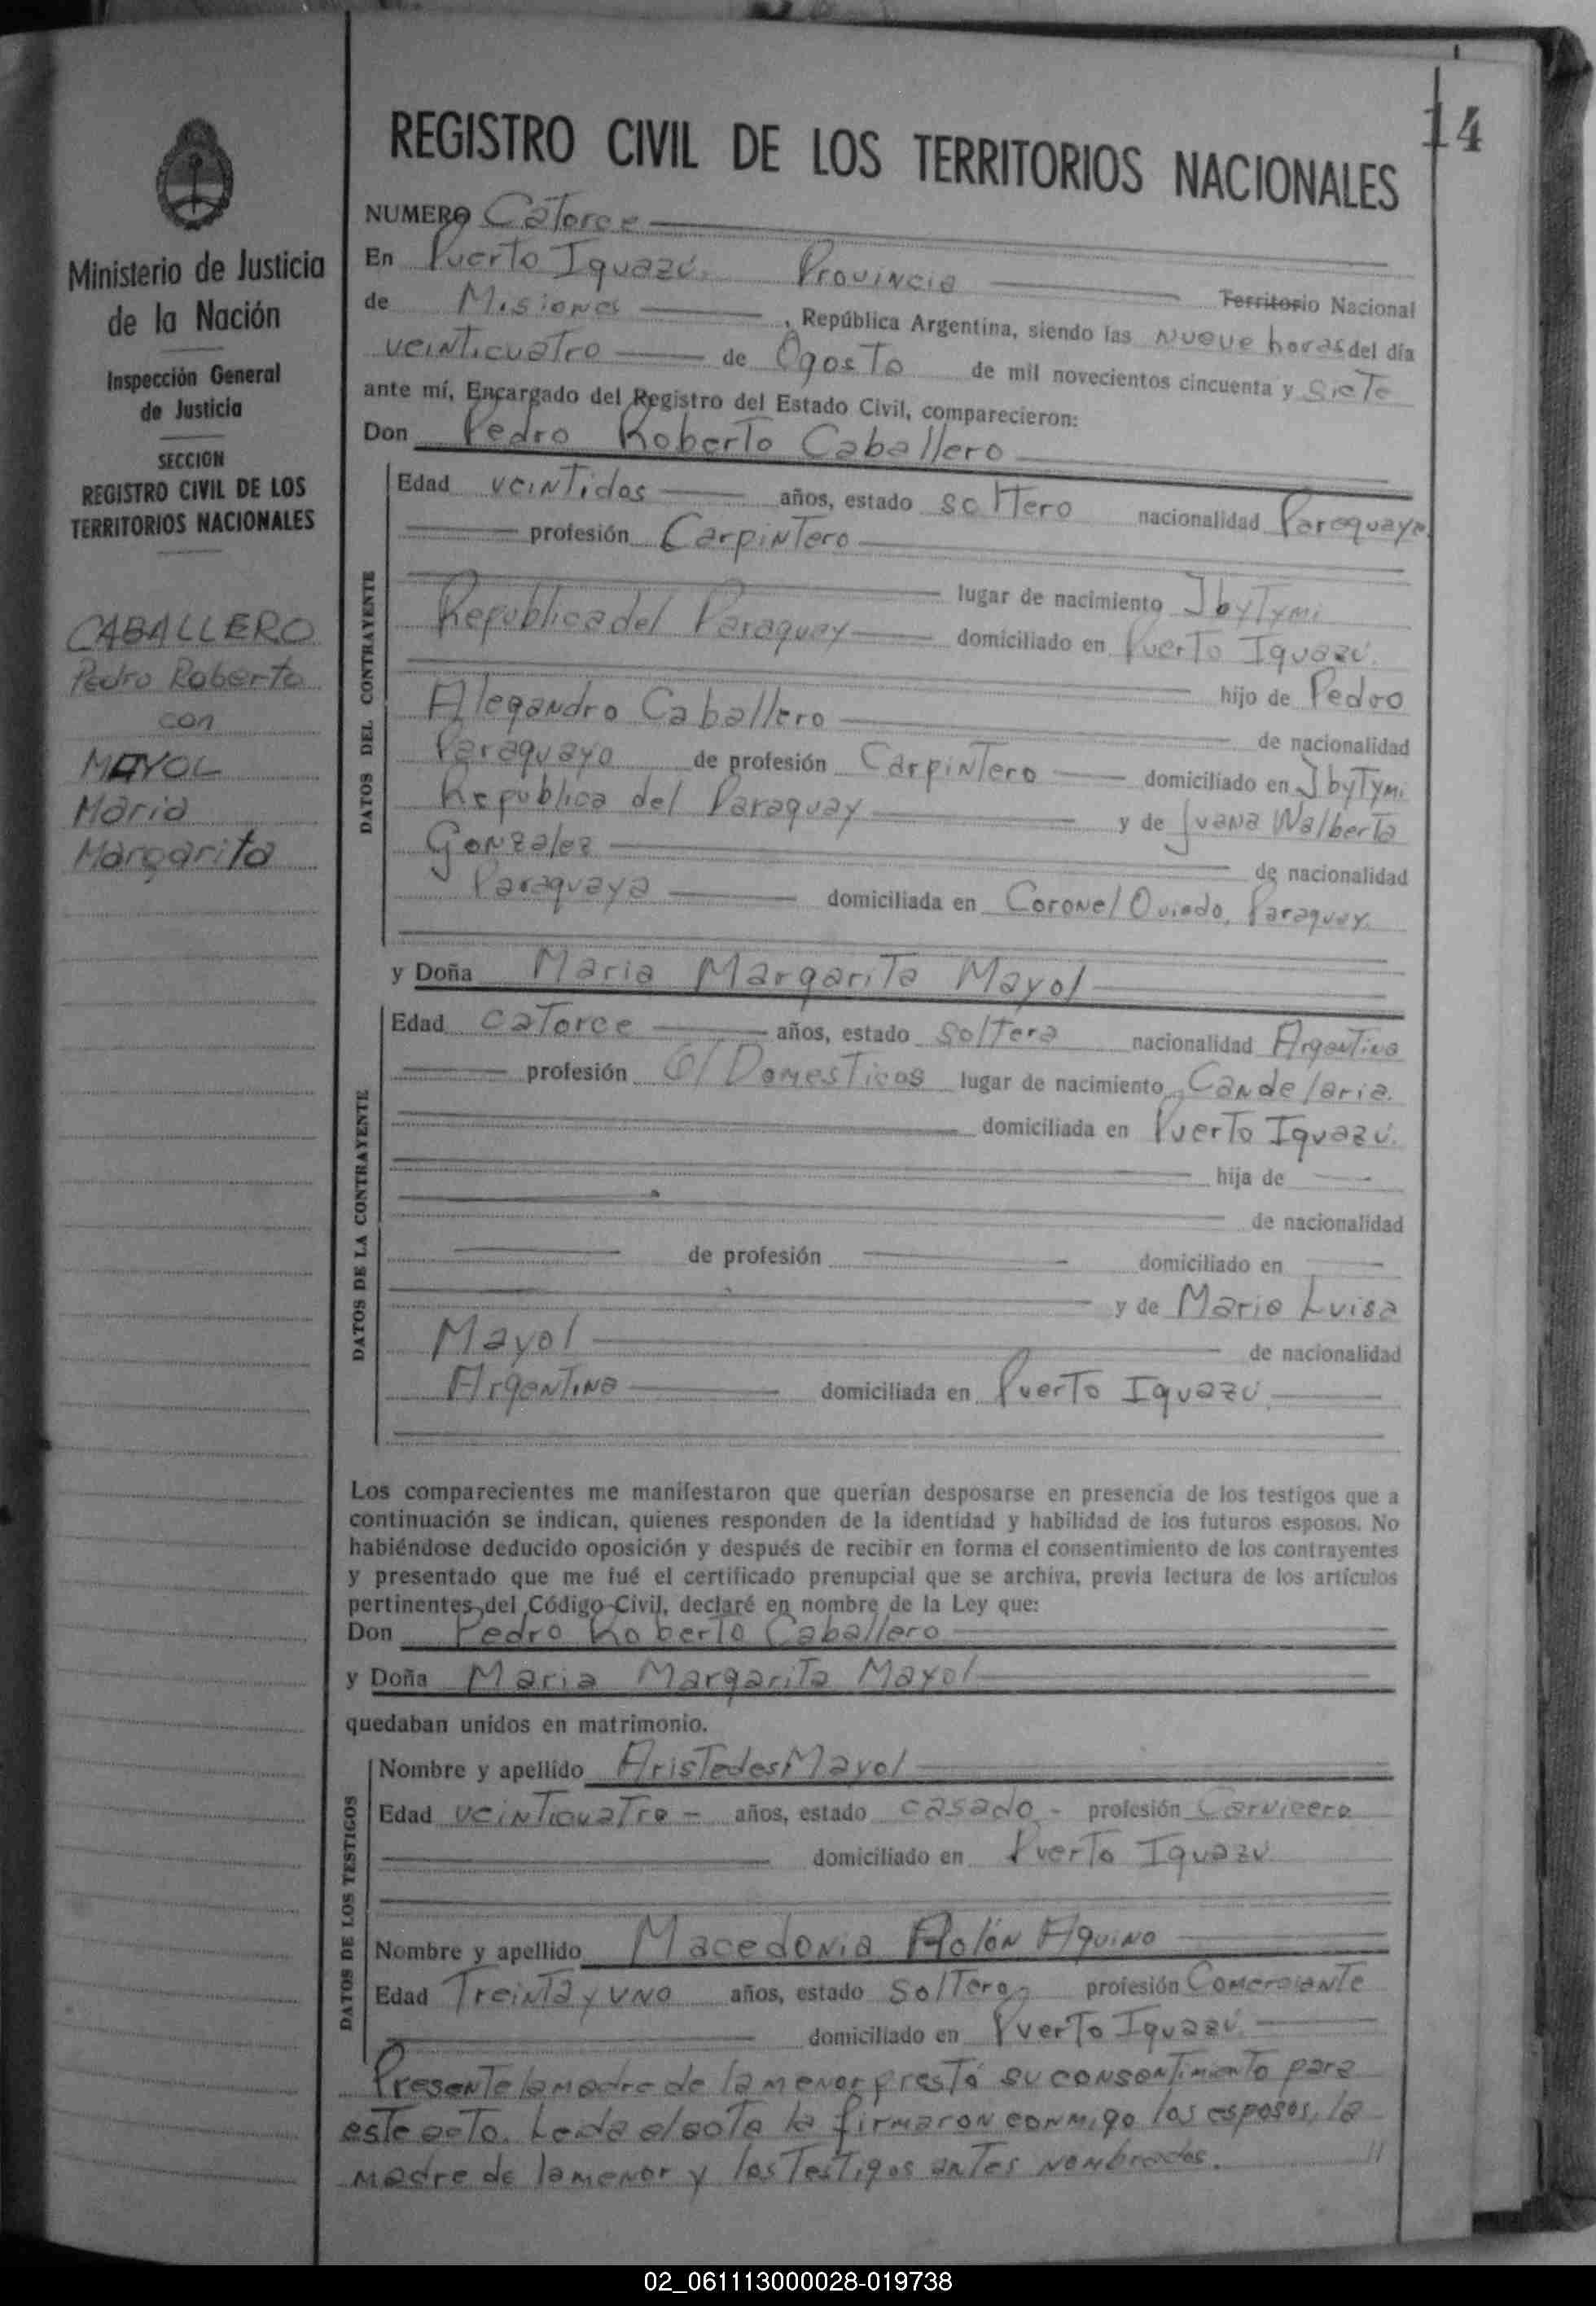 14
REGISTRO CIVIL DE LOS TERRITORIOS NACIONALES
Ministerio de Justicia
de la Nación
Inspección General
de Justicia
SECCION
REGISTRO CIVIL DE LOS
TERRITORIOS NACIONALES
CABALLERO
Pedro Roberto
con
MAYOL
Maria
Margarita
NUMERO Catorce
En Puerto Iguazú. Provincia Territorio Nacional
de Misiones , República Argentina, siendo las nueve horas del día
veinticuatro de Agosto de mil novecientos cincuenta y siete
ante mí, Encargado del Registro del Estado Civil, comparecieron:
Don Pedro Roberto Caballero
DATOS DEL CONTRAYENTE
Edad veintidos años, estado soltero nacionalidad Paraguaya
profesión Carpintero
lugar de nacimiento Jbytymi
Republica del Paraguay domiciliado en Puerto Iguazú.
hijo de Pedro
Alegandro Caballero
de nacionalidad
Paraguayo de profesión Carpintero domiciliado en Jbytymi
Republica del Paraguay y de Juana Walberta
Gonzalez
de nacionalidad
Paraguaya domiciliada en Coronel Oviedo, Paraguay.
y Doña Maria Margarita Mayol
DATOS DE LA CONTRAYENTE
Edad catorce años, estado soltera nacionalidad Argentina
profesión Q/ Domesticos lugar de nacimiento Candelaria.
domiciliada en Puerto Iguazú.
hija de
de nacionalidad
de profesión domiciliado en
y de Maria Luisa
Mayol
de nacionalidad
Argentina domiciliada en Puerto Iguazú.
Los comparecientes me manifestaron que querían desposarse en presencia de los testigos que a
continuación se indican, quienes responden de la identidad y habilidad de los futuros esposos. No
habiéndose deducido oposición y después de recibir en forma el consentimiento de los contrayentes
y presentado que me fué el certificado prenupcial que se archiva, previa lectura de los artículos
pertinentes del Código Civil, declaré en nombre de la Ley que:
Don Pedro Roberto Caballero
y Doña Maria Margarita Mayol
quedaban unidos en matrimonio.
DATOS DE LOS TESTIGOS
Nombre y apellido Aristedes Mayol
Edad veinticuatro - años, estado casado - profesión Carnicero
domiciliado en Puerto Iguazú
Nombre y apellido Macedonia Rolón Aquino
Edad Treinta y uno años, estado Soltera, profesión Comerciante
domiciliado en Puerto Iguazú.
Presente la madre de la menor prestó su consentimiento para
este acto. Leida el acta la firmaron conmigo los esposos, la
madre de la menor y los testigos antes nombrados. //
02_061113000028-019738